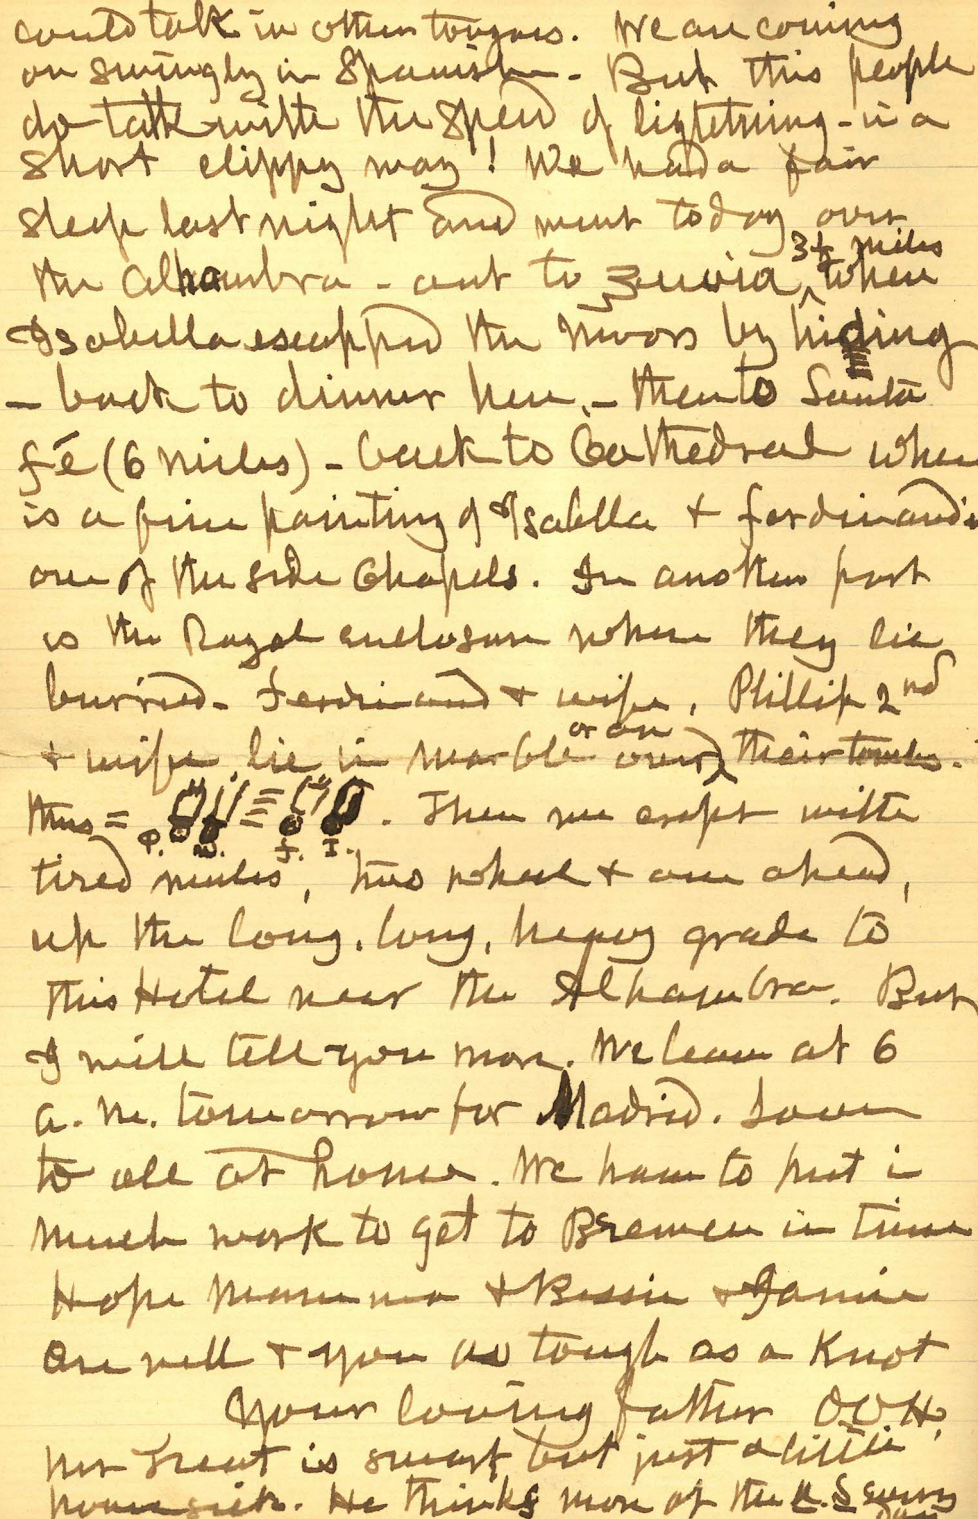 could talk in other tongues. We are coming
on swingly in Spanish - But this people
do talk with the speed of lightening - in a
short clippy way! We had a fair
sleep last night and went today over
the Alhambra - out to Zuvia, 3½ miles where
Isabella escapped the Moors by hiding
- back to dinner here, - then to Santa
Fé (6 miles) - back to Cathedral where
is a fine painting of Isabella + Ferdinand in
one of the side Chapels. In another part
is the Royal enclosure where they lie
burried - Ferdinand + wife, Phillip 2nd
+ wife, lie in marble or on over their tombs.
thus = P. W. F. I. Then we crept with
tired mules, two wheel + one ahead,
up the long, long, heavy grade to
this Hotel near the Alhambra. But
I will tell you more. We leave at 6
a.m. tomorrow for Madrid. Love
to all at home. We have to put in
much work to get to Bremen in time
Hope Mamma + Bessie + Jamie
are well + you as tough as a knot
Your loving father OOH.
Mr Treat is smart but just a little
homesick. He thinks more of the U.S every
day